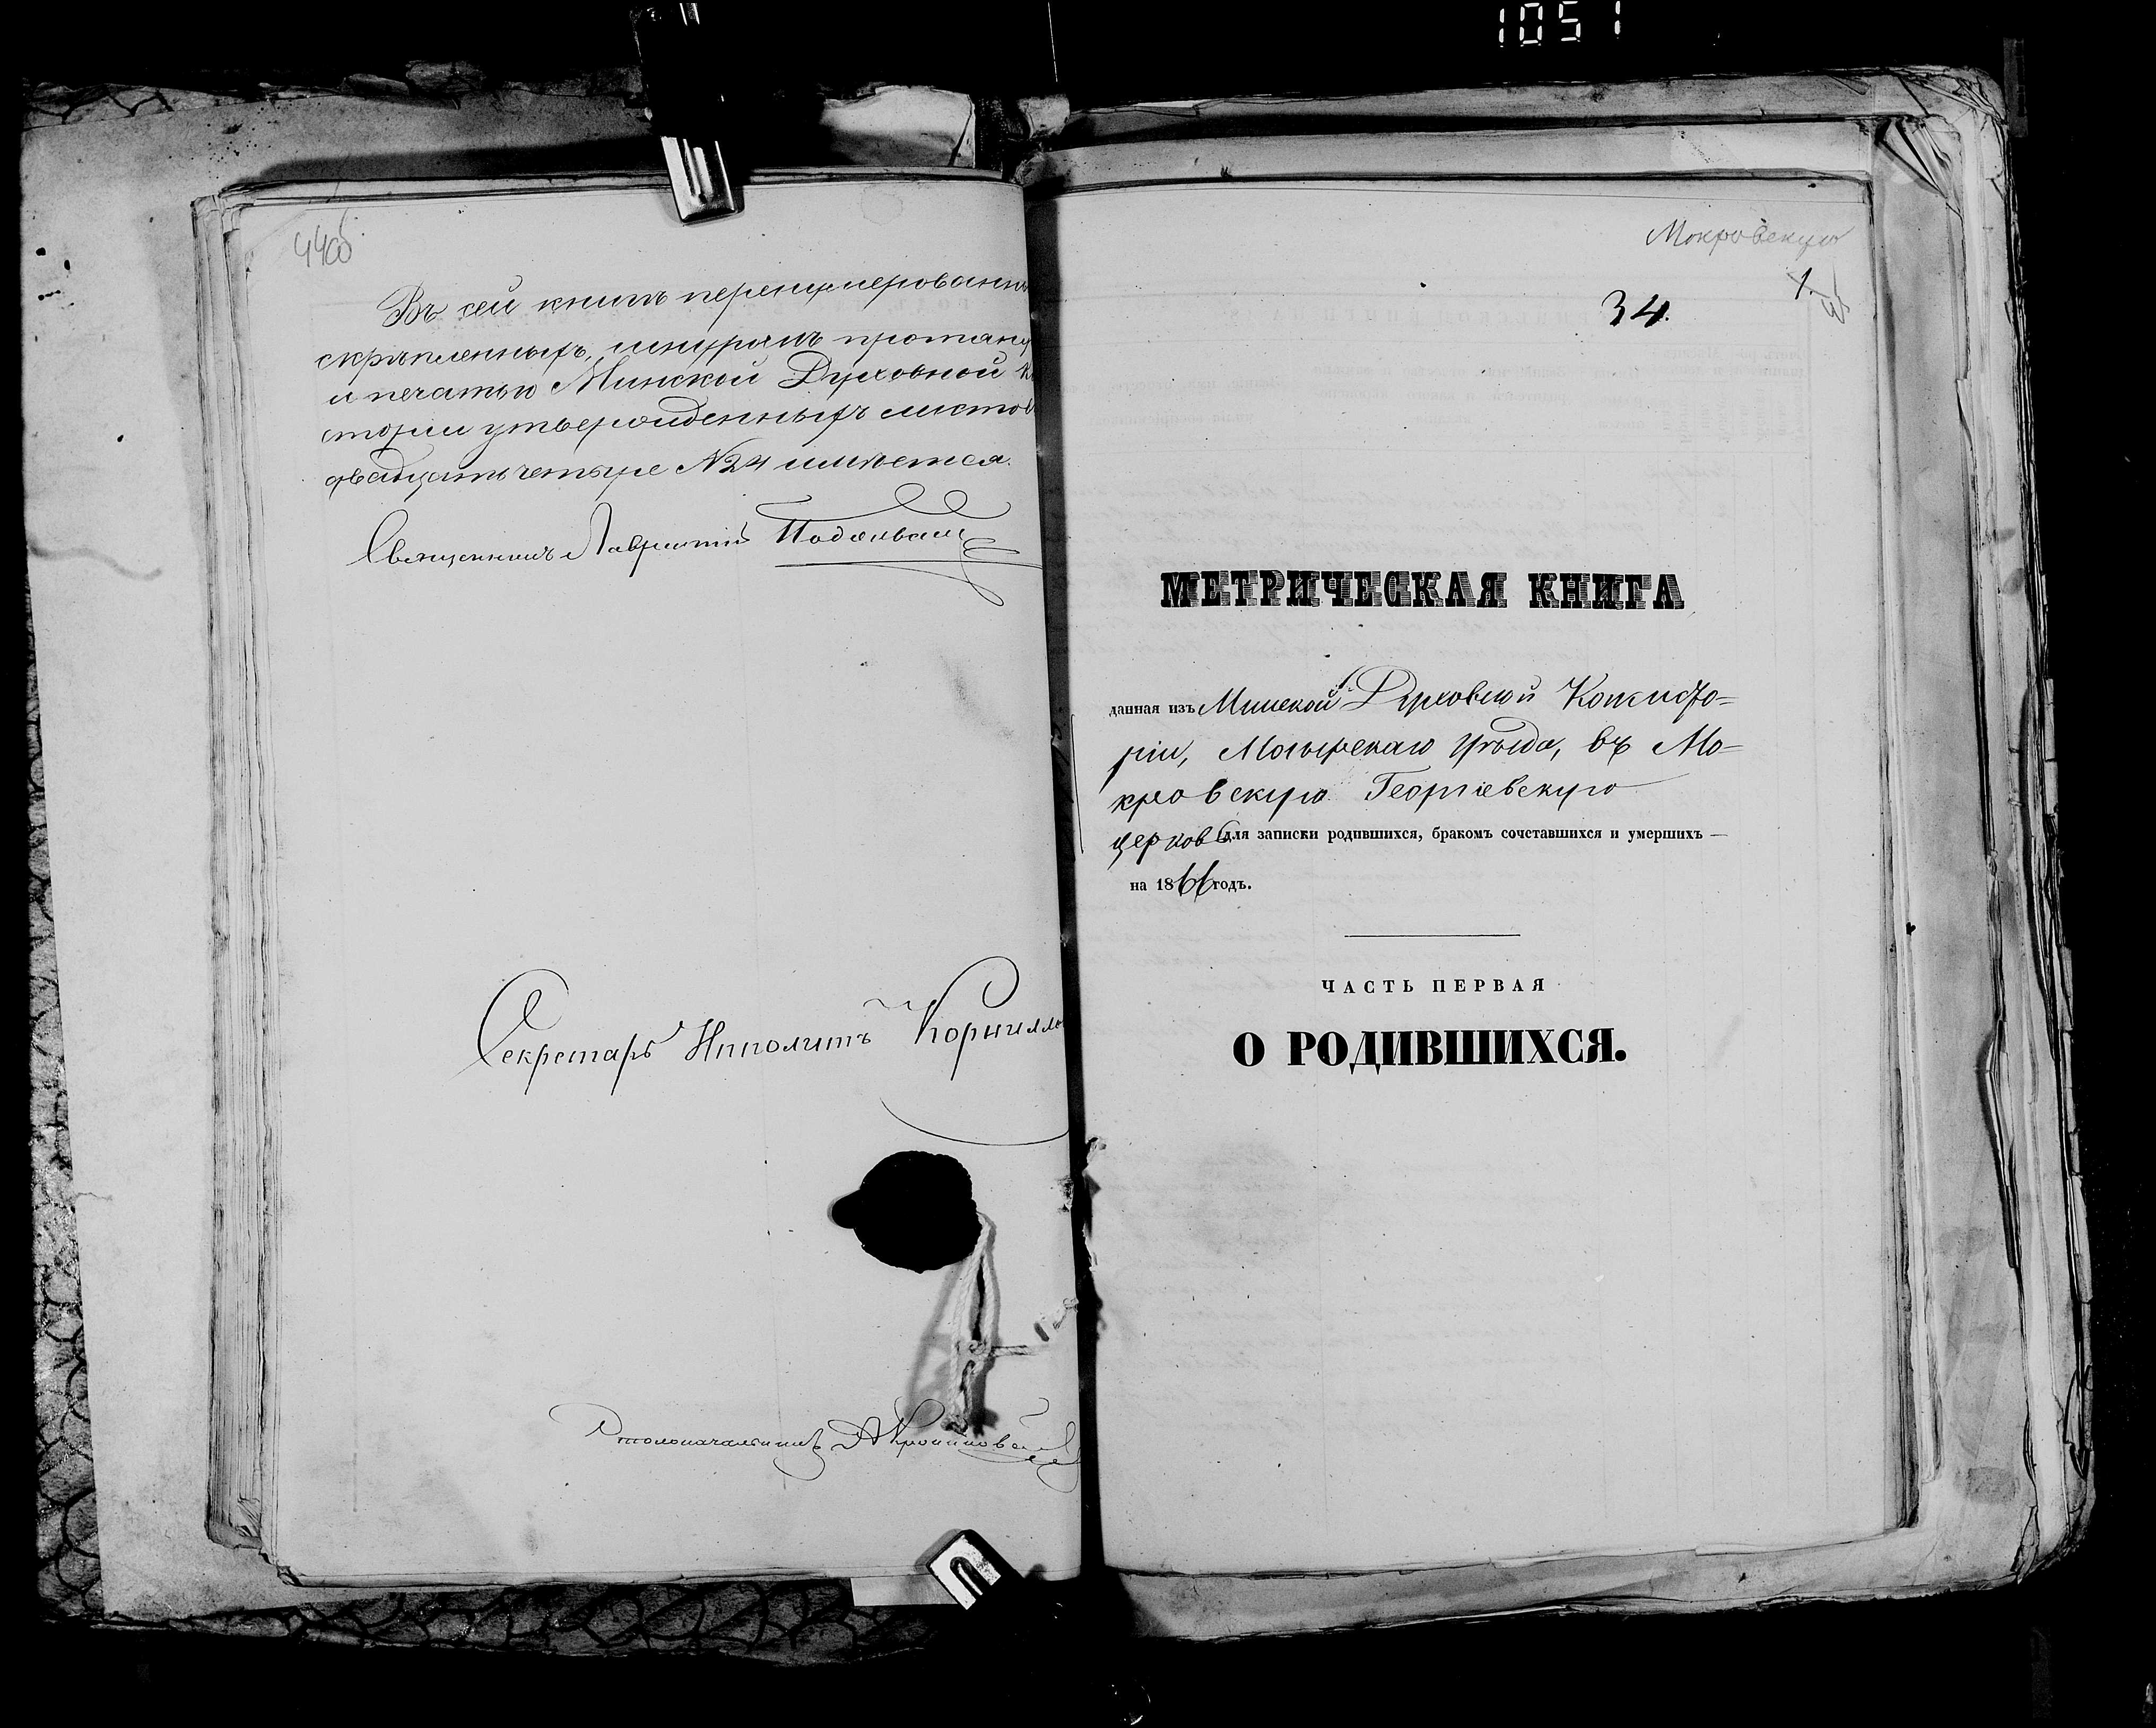 1051
44об.
Въ сей книгѣ перенумерованны
скрѣпленныхъ, шнуромъ протяну
и печатью Минской Духовной К
сторіи утвержденныхъ листов
двадцать четыре №24 имѣется.
Священникъ Лаврентій
Секретарь Ипполитъ Корнилло
Столоначальникъ
Мокровскую
1.
34.
МЕТРИЧЕСКАЯ КНИГА
данная изъ Минской Духовной Консисто-
ріи, Мозырскаго уѣзда, въ Мо-
кровскую Георгіевскую
церковь для записки родившихся, бракомъ сочетавшихся и умершихъ —
на 1866 годъ.
ЧАСТЬ ПЕРВАЯ
О РОДИВШИХСЯ.